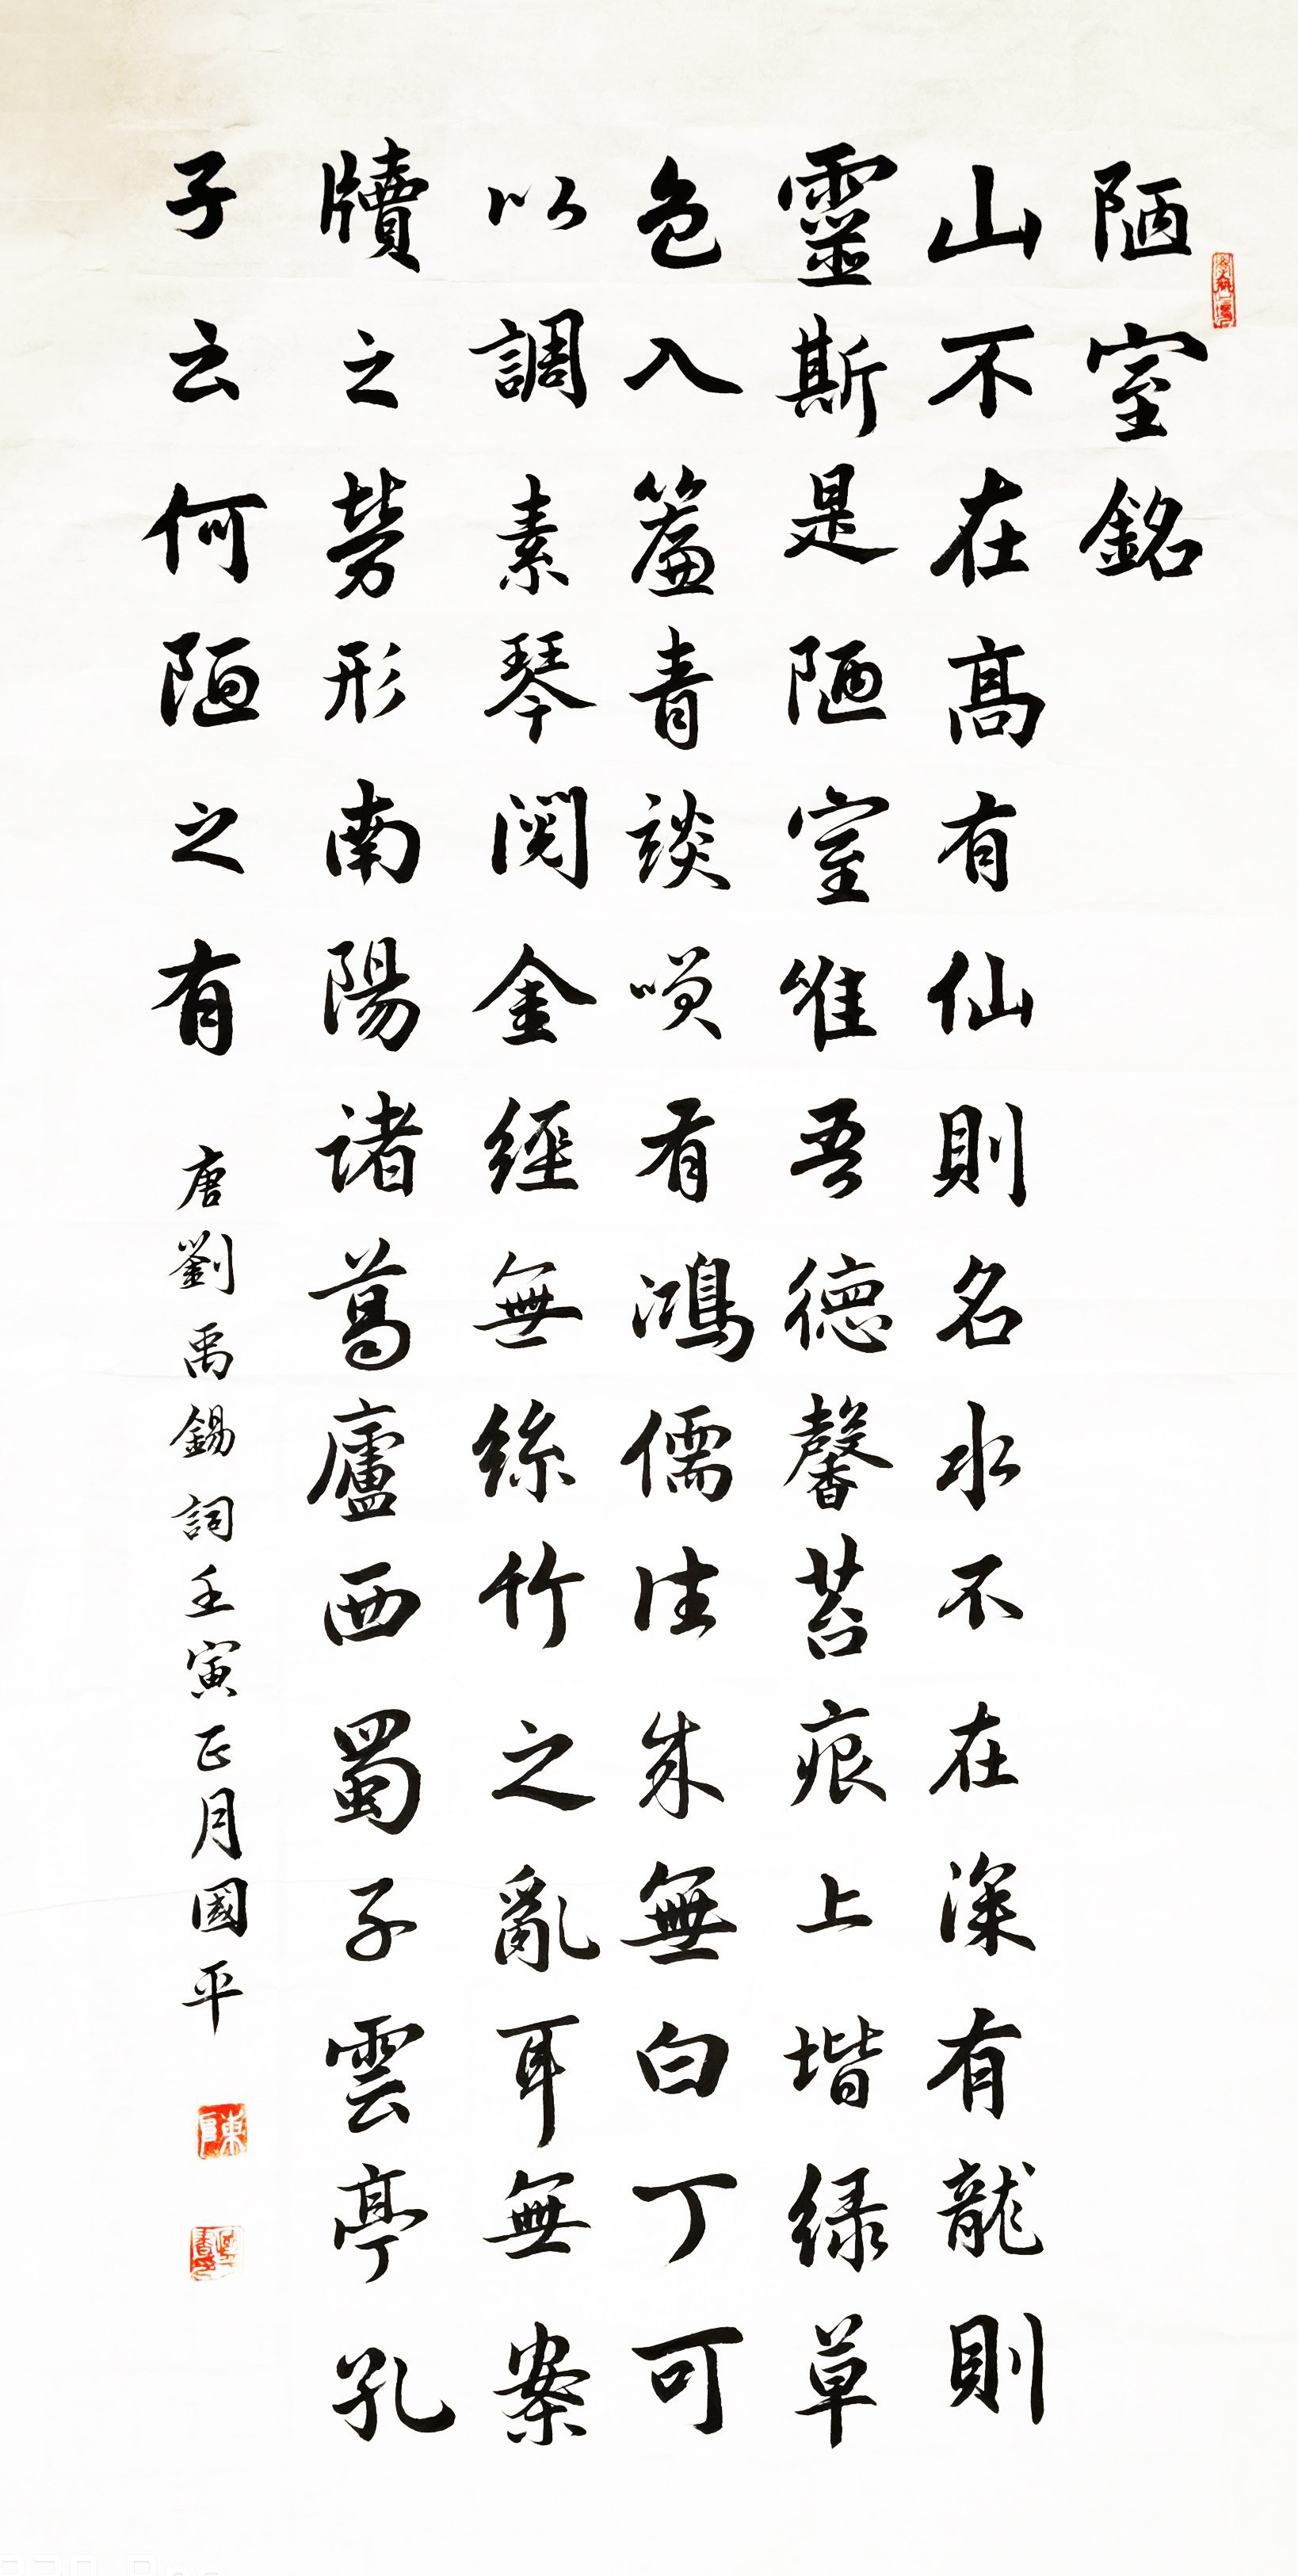 陋室銘
山不在高有仙則名水不在深有龍則
靈斯是陋室惟吾德馨苔痕上堦緑草
色入簾青談咲有鴻儒往来無白丁可
以調素琴閱金經無絲竹之亂耳無案
牘之勞形南陽諸葛廬西蜀子雲亭孔
子云何陋之有 唐劉禹錫詞壬寅正月國平